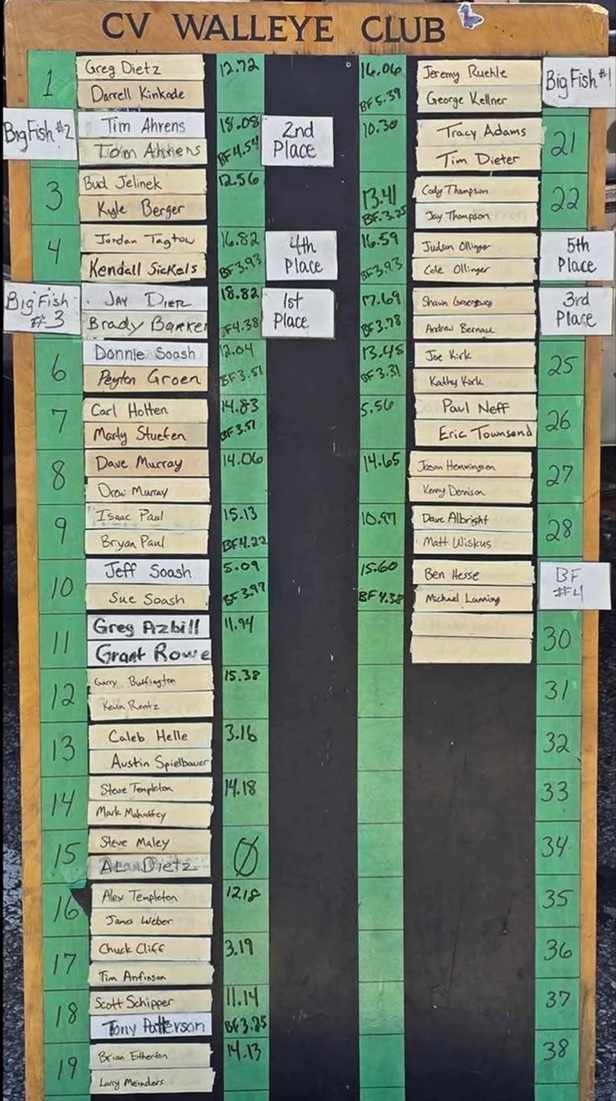 CV WALLEYE CLUB
1 Greg Dietz 12.72
Darrell Kinkade
Big Fish #2 Tim Ahrens 18.08 2nd Place
Tom Ahrens BF 4.54
3 Bud Jelinek 12.56
Kyle Berger
4 Jordan Tagtow 16.82 4th Place
Kendall Sickels BF 3.93
Big Fish #3 Jay Dietz 18.82 1st Place
Brady Barker BF 4.38
6 Donnie Soash 12.04
Peyton Groen BF 3.51
7 Carl Holten 14.83
Marty Stuefen BF 3.51
8 Dave Murray 14.06
Drew Murray
9 Isaac Paul 15.13
Bryan Paul BF 4.22
10 Jeff Soash 5.09
Sue Soash BF 3.97
11 Greg Azbill 11.94
Grant Rowe
12 Garry Buffington 15.38
Kevin Rentz
13 Caleb Helle 3.16
Austin Spielbauer
14 Steve Templeton 14.18
Mark Mahaffey
15 Steve Maley Ø
Alan Dietz
16 Alex Templeton 12.18
James Weber
17 Chuck Cliff 3.19
Tim Anfinson
18 Scott Schipper 11.14
Tony Patterson BF 3.85
19 Brian Etherton 14.13
Larry Meinders
16.06 Jeremy Ruehle Big Fish #1
BF 5.39 George Kellner
10.30 Tracy Adams 21
Tim Dieter
13.41 Cody Thompson 22
BF 3.25 Jay Thompson
16.59 Judson Ollinger 5th Place
BF 3.93 Cole Ollinger
17.69 Shawn 3rd Place
BF 3.78 Andrew
13.45 Joe Kirk 25
BF 3.31 Kathy Kirk
5.56 Paul Neff 26
Eric Townsend
14.65 Jason Hemmingsen 27
Kenny Dennison
10.97 Dave Albright 28
Matt Wiskus
15.60 Ben Hesse BF #4
BF 4.38 Michael Lanning
30
31
32
33
34
35
36
37
38